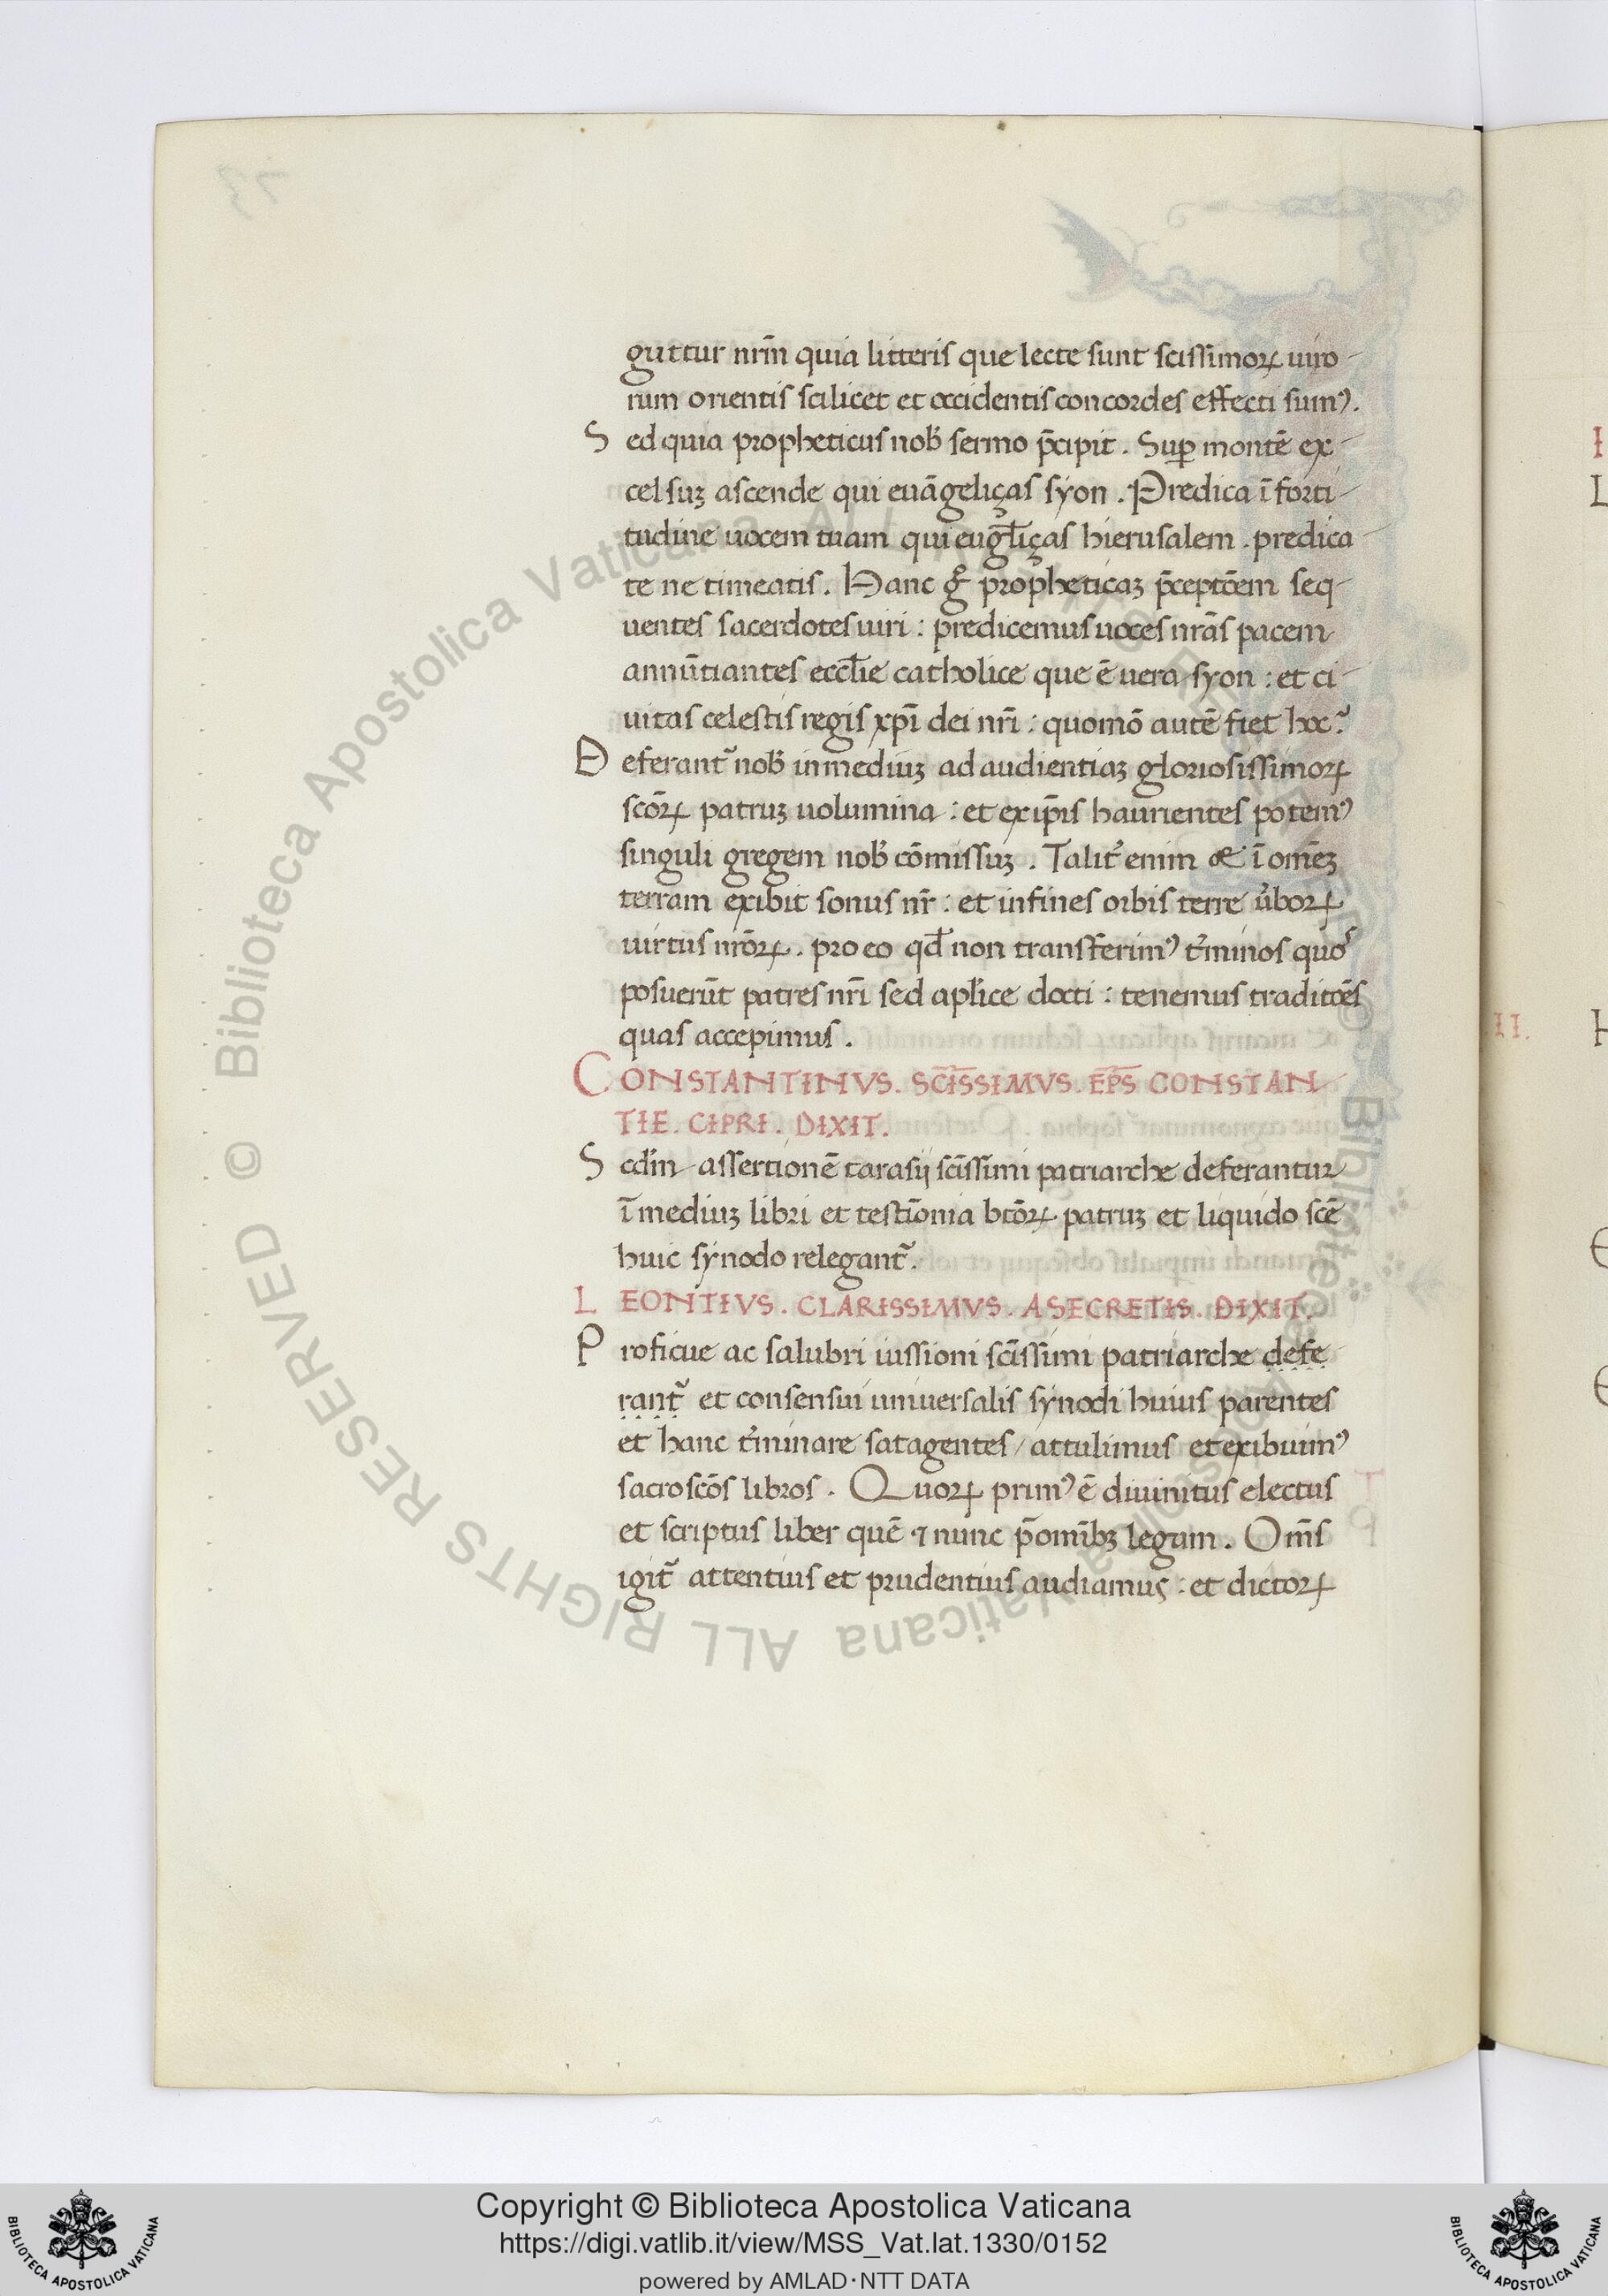 guttur nrm̄ quia litteris que lecte sunt scissimoꝝ uiro-
rum orientis scilicet et occidentis concordes effecti sumꝰ.
Sed quia propheticus nob̄ sermo p̄cipit. Suꝑ montē ex-
celsuꝫ ascende qui euāgeliças syon. Predica ī forti-
tudine uocem tuam qui eugl̄iças hierusalem. predica-
te ne timeatis. Hanc gͦ propheticaꝫ p̄ceptōem seq-
uentes sacerdotes uiri: predicemus uoces nrās pacem
annūtiantes eccl̄ie catholice que ē uera syon: et ci-
uitas celestis regis xp̄i dei nr̄i: quomō autē fiet hoc?
Deferant᷑ nob̄ in mediuꝫ ad audientiaꝫ gloriosissimoꝝ
scōꝝ patruꝫ uolumina: et ex ip̄is haurientes potemꝰ
singuli gregem nob̄ cōmissuꝫ. Talit᷑ enim & ī omēꝫ
terram exibit sonus nr̄: et in fines orbis terre u̓boꝝ
uirtus nrōꝝ. pro eo qd̄ non transferimꝰ t᷑minos quos
posuerūt patres nr̄i sed apl̄ice docti: tenemus traditōes
quas accepimus.
CONSTANTINVS. SC̄ISSIMVS. EP̄S CONSTAN-
TIE. CIPRI. DIXIT.
Scd̄m assertionē tarasij scīssimi patriarche deferantur
ī mediuꝫ libri et testīonia btōꝝ patruꝫ et liquido scē
huic synodo relegant᷑.
LEONTIVS. CLARISSIMVS. ASECRETIS. DIXIT.
Proficue ac salubri iussioni scīssimi patriarche defe
rant᷑ et consensui uniuersalis synodi huius parentes
et hanc t᷑minare satagentes / attulimus et exibuimꝰ
sacroscōs libros. Quoꝝ primꝰ ē diuinitus electus
et scriptus liber quē ⁊ nunc p̄ omībꝫ legam. Om̄s
igit᷑ attentius et prudentius audiamus: et dictoꝝ
II.
© Biblioteca Apostolica Vaticana ALL RIGHTS RESERVED
Copyright © Biblioteca Apostolica Vaticana
https://digi.vatlib.it/view/MSS_Vat.lat.1330/0152
powered by AMLAD·NTT DATA
BIBLIOTECA APOSTOLICA VATICANA
BIBLIOTECA APOSTOLICA VATICANA